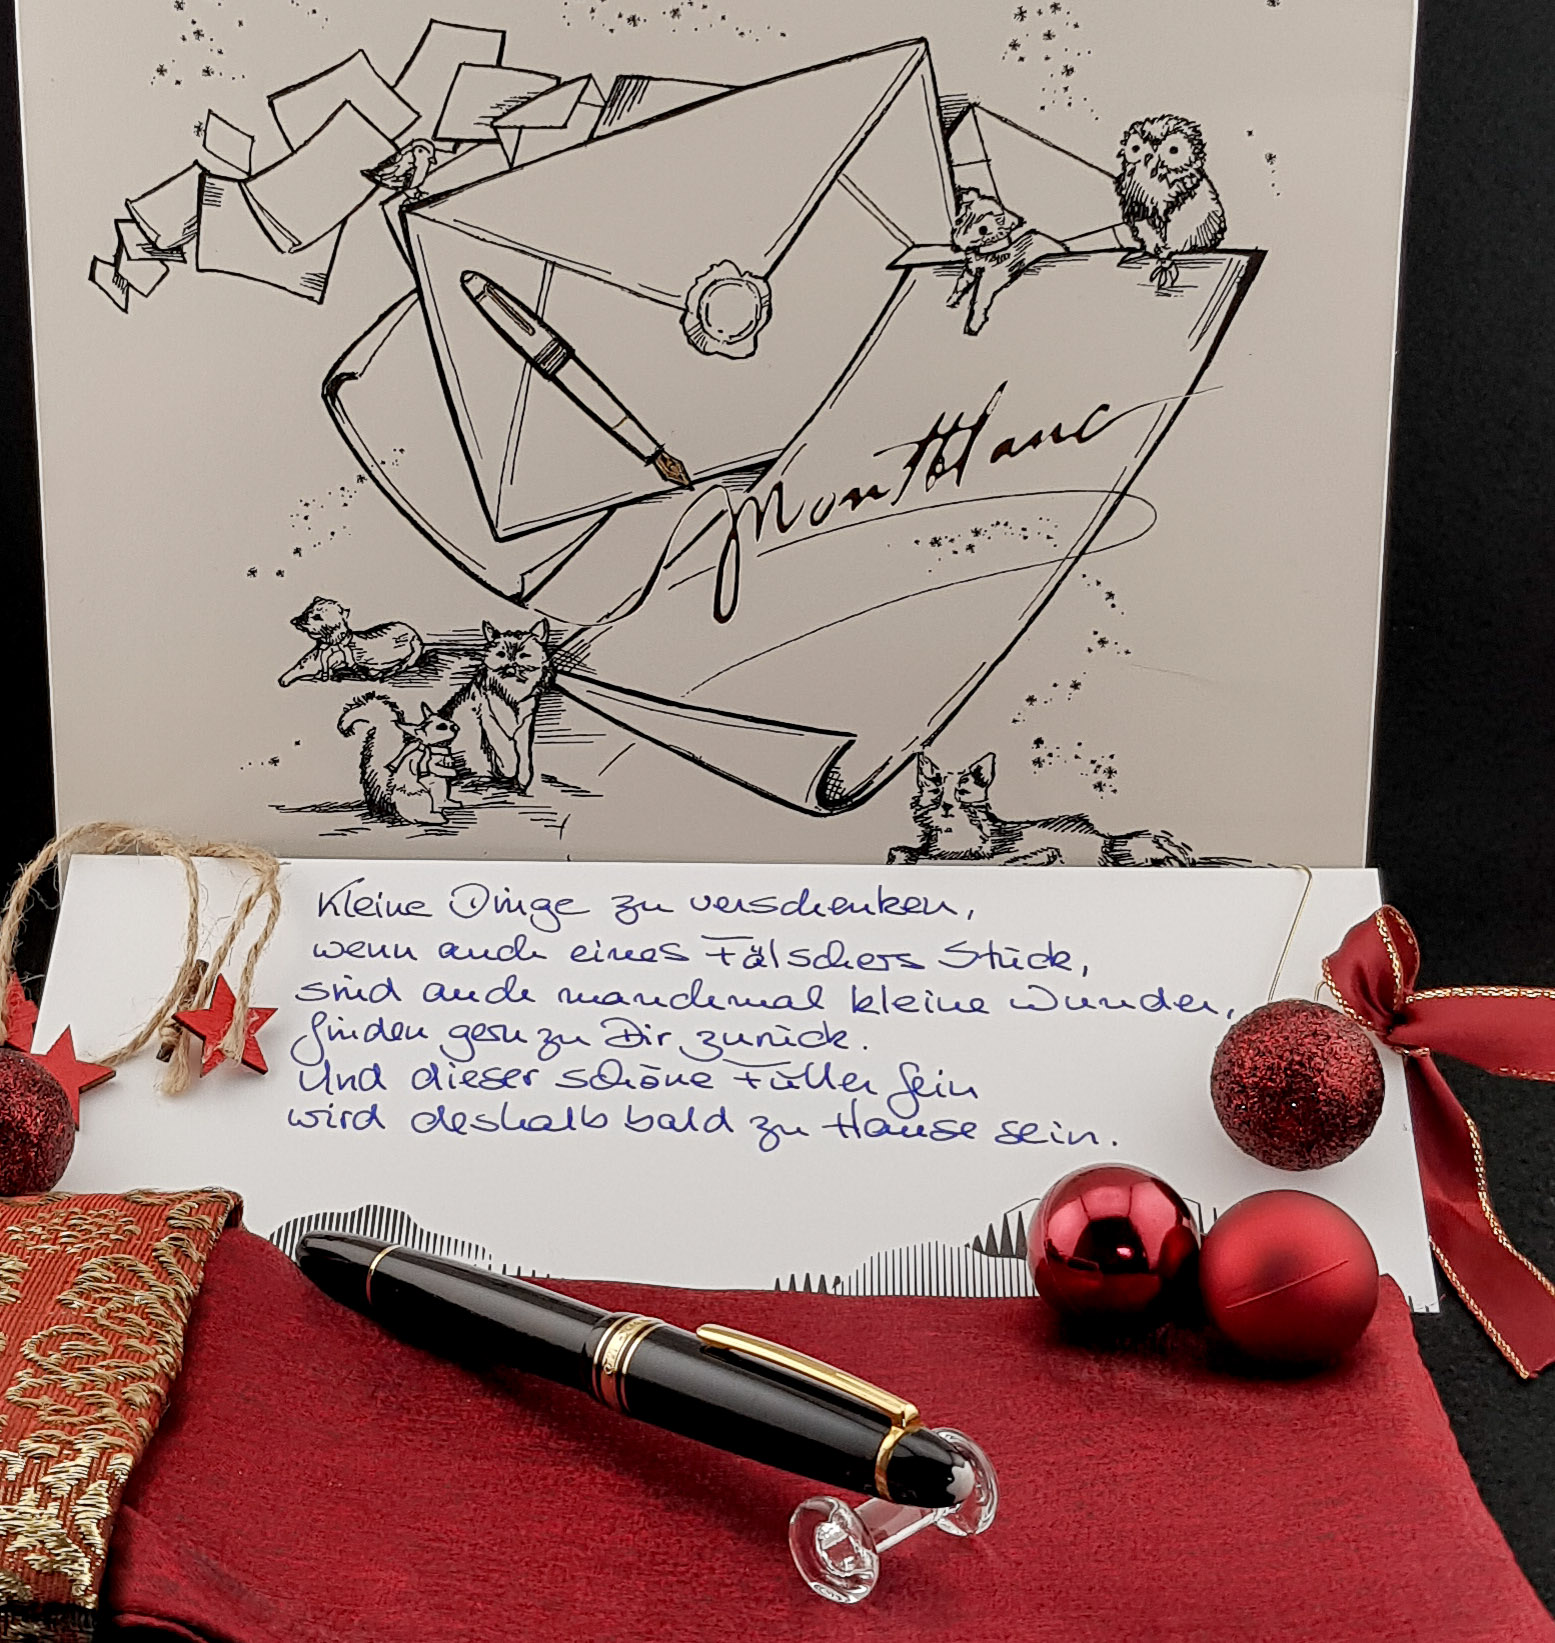 Montblanc
Kleine Dinge zu verschenken,
wenn auch eines Fälschers Stück,
sind auch manchmal kleine Wunder,
finden gern zu Dir zurück.
Und dieser schöne Füller fein
wird deshalb bald zu Hause sein.